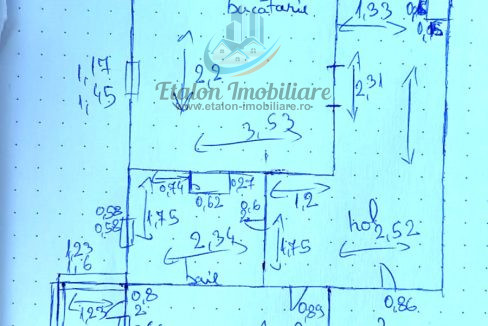 bucătărie
1,33
0,15
1,17
1,45
2,2
2,31
Etalon Imobiliare
www.etalon-imobiliare.ro
3,53
0,74
0,27
0,62
1,2
0,58
0,58
1,75
0,6
hol
2,52
2,34
1,75
1,23
1,6
baie
1,23
0,8
2
0,89
0,86